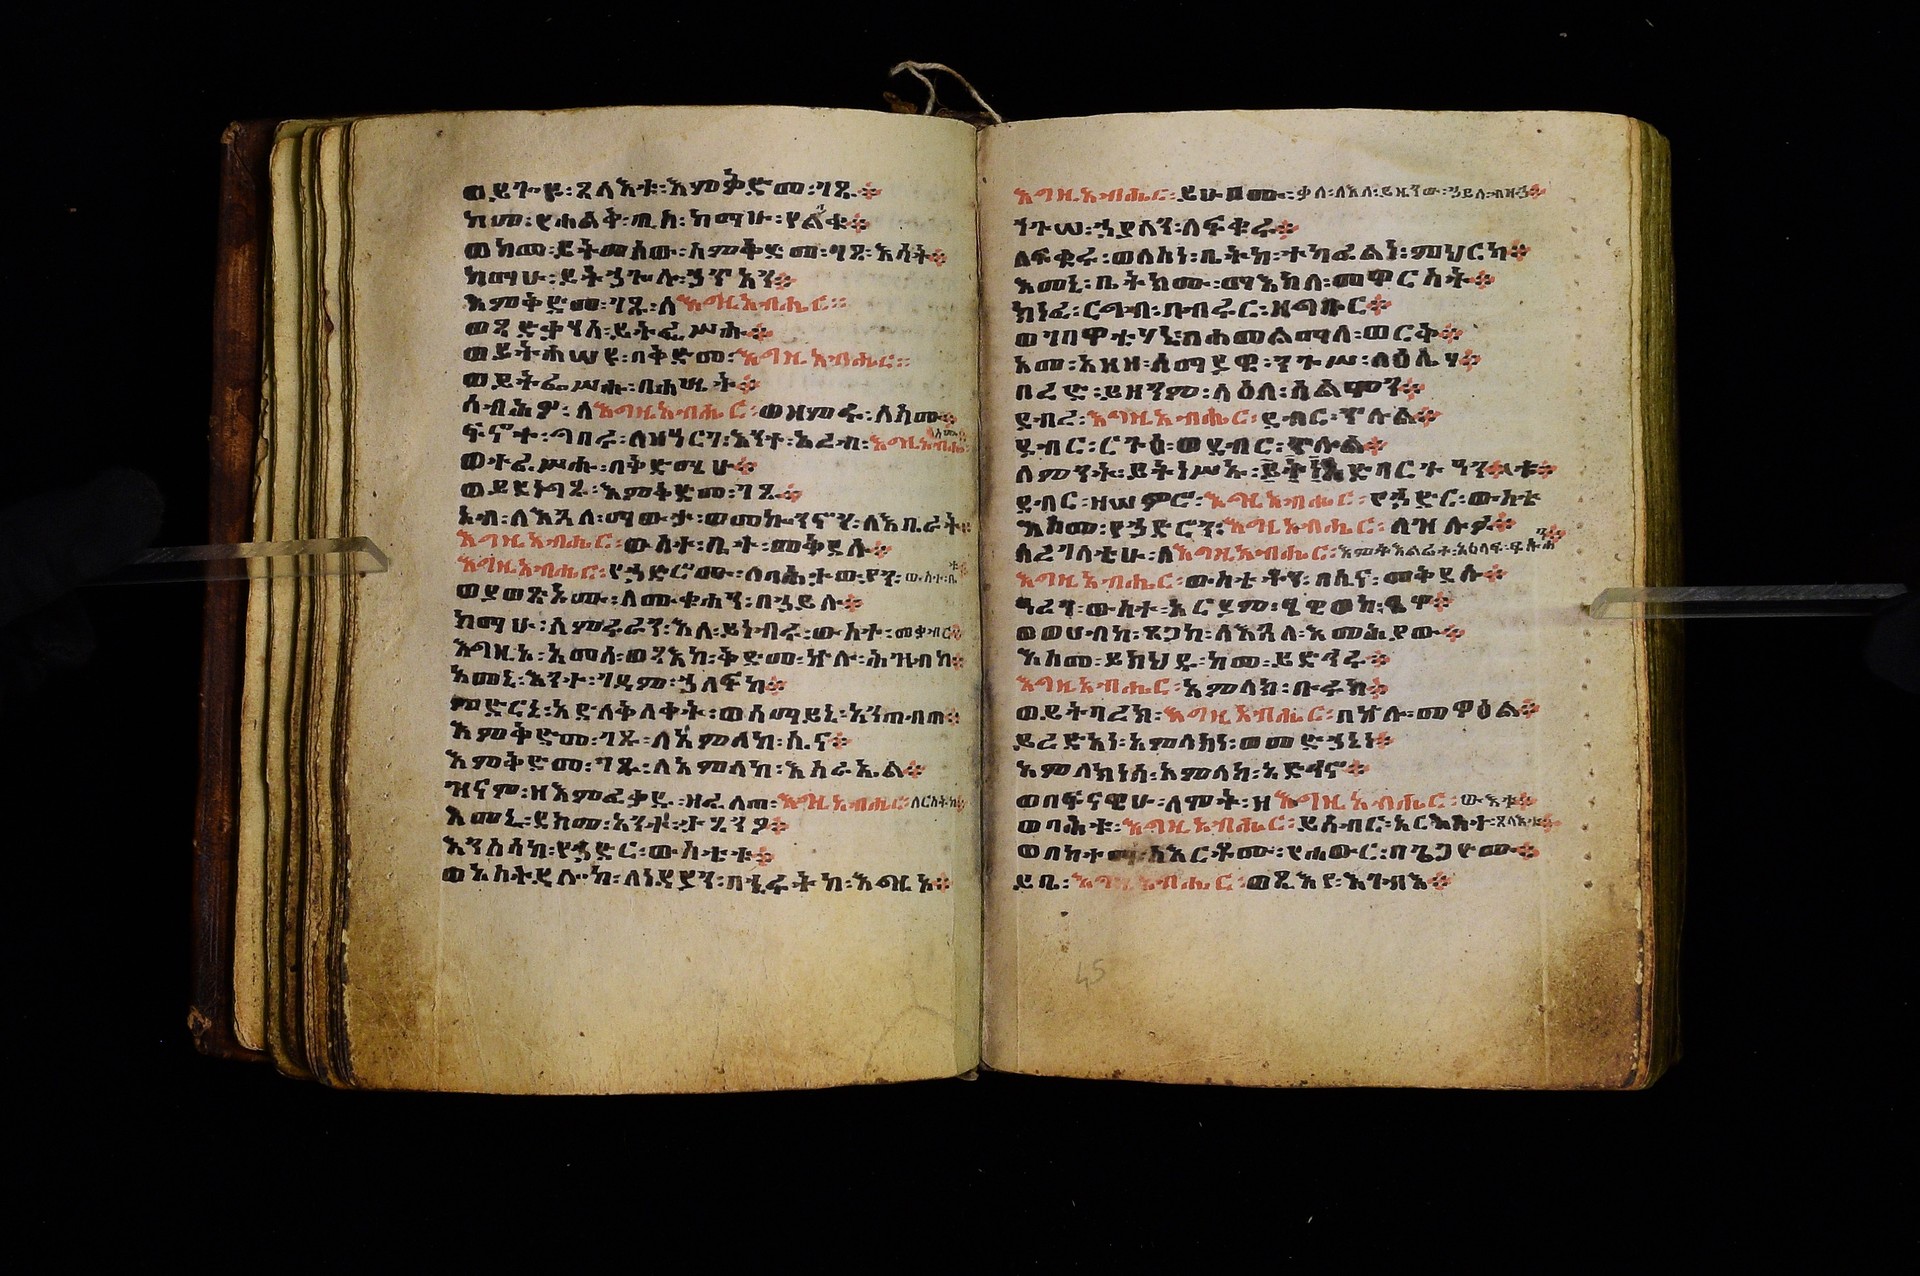 ወይጐዩ፡ጸላእቱ፡እምቅድመ፡ገጹ።
ከመ፡የሐልቅ፡ጢስ፡ከማሁ፡የኅልቁ።
ወከመ፡ይትመሰው፡ሰምቅድመ፡ገጸ፡እሳት።
ከማሁ፡ይትኃጐሉ፡ኃጥአን።
እምቅድመ፡ገጹ፡ለእግዚአብሔር።
ወጻድቃንሰ፡ይትፌሥሑ።
ወይትሐሠዩ፡በቅድመ፡እግዚአብሔር።
ወይትፌሥሑ፡በሐሤት።
ሰብሕዎ፡ለእግዚአብሔር፡ወዘምሩ፡ለስሙ።
ፍኖተ፡ግበሩ፡ለዘዓርገ፡እንተ፡አረብ፡እግዚአብሔር፡ስሙ።
ወተፈሥሑ፡በቅድሜሁ።
ወይደነግጹ፡እምቅድመ፡ገጹ።
አብ፡ለእጓለ፡ማውታ፡ወመኰንኖን፡ለእቤራት።
እግዚአብሔር፡ውስተ፡ቤተ፡መቅደሱ።
እግዚአብሔር፡የኃድሮሙ፡ለባሕተውያን፡ውስተ፡ቤቱ።
ወያወጽኦሙ፡ለሙቁሐን፡በኃይሉ።
ከማሁ፡ለምሩራን፡እለ፡ይነብሩ፡ውስተ፡መቃብር።
እግዚኦ፡አመሰ፡ወፃእከ፡ቅድመ፡ኵሉ፡ሕዝብከ።
አመኒ፡እንተ፡ገዳም፡ኃለፍከ።
ምድርኒ፡አድለቅለቀት፡ወሰማይኒ፡አንጠብጠ።
እምቅድመ፡ገጹ፡ለአምላከ፡ሲና።
እምቅድመ፡ገጹ፡ለአምላከ፡እስራኤል።
ዝናም፡ዘእምፈቃዱ፡ዘፈለጠ፡እግዚአብሔር፡ለርስትከ።
እመኒ፡ደክመ፡አንተ፡ታጸንዖ።
እንስሳከ፡የኃድር፡ውስቴታ።
ወአስተደሎከ፡ለነዳያን፡በኂሩትከ፡እግዚኦ።
እግዚአብሔር፡ይሁቦሙ፡ቃለ፡ለእለ፡ይዜንው፡ኃይለ፡ብዙኃ።
ንጉሠ፡ኃያላን፡ለፍቁሩ።
ለፍቁሩ፡ወለስነ፡ቤትከ፡ተካፈልነ፡ምህርካ።
እመኒ፡ቤትክሙ፡ማእከለ፡መዋርስት።
ክነፈ፡ርግብ፡በብሩር፡ዘግቡር።
ወገበዋቲሃኒ፡በሐመልማለ፡ወርቅ።
አመ፡አዘዘ፡ሰማያዊ፡ንጉሥ፡ላዕሌሃ።
በረድ፡ይዘንም፡ላዕለ፡ሰልሞን።
ደብረ፡እግዚአብሔር፡ደብር፡ጥሉል።
ደብር፡ርጉዕ፡ወደብር፡ጥሉል።
ለምንት፡ይትነሥኡ፡
ደብር፡ዘሠምሮ፡እግዚአብሔር፡የኃድር፡ውስቴቱ
እስመ፡የኃድሮን፡እግዚአብሔር፡ለዝሉፉ።
ሰረገላቲሁ፡ለእግዚአብሔር፡
እግዚአብሔር፡ውስቴቶን፡በሲና፡መቅደሱ።
ዓረገ፡ውስተ፡አርያም፡ፄዊወከ፡ፄዋ።
ወወሀብከ፡ጸጋከ፡ለእጓለ፡እመሕያው።
እስመ፡ይክህዱ፡ከመ፡ይኅድሩ።
እግዚአብሔር፡አምላክ፡ቡሩክ።
ወይትባረክ፡እግዚአብሔር፡በኵሉ፡መዋዕል።
ይረድአነ፡አምላክነ፡ወመድኃኒነ።
አምላክነሰ፡አምላክ፡አድኅኖ።
ወበፍናዊሁ፡ለሞት፡ዘእግዚአብሔር፡ውእቱ።
ወባሕቱ፡እግዚአብሔር፡ይሰብር፡አርእስተ፡ጸላእቱ።
ወበከተማ፡ስእርቶሙ፡የሐውር፡በጌጋዮሙ።
ይቤ፡እግዚአብሔር፡
45